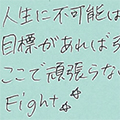 人生に不可能は
目標があれば
ここで頑張らな
Eight